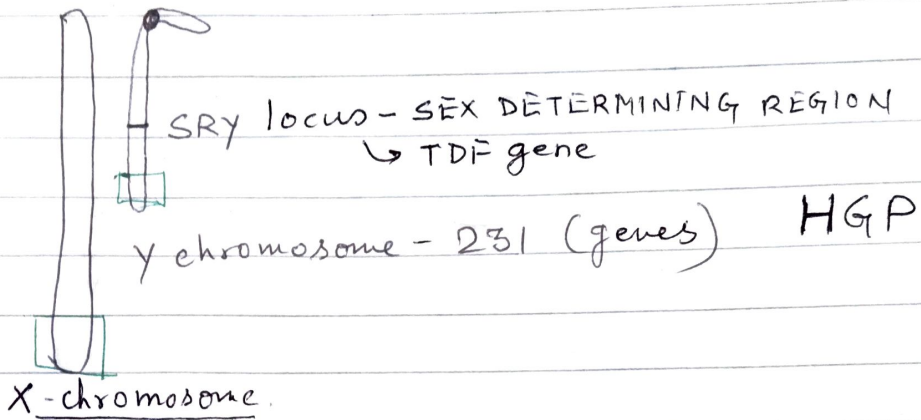 SRY locus - SEX DETERMINING REGION
↳ TDF gene
Y chromosome - 231 (genes) HGP
X-chromosome.